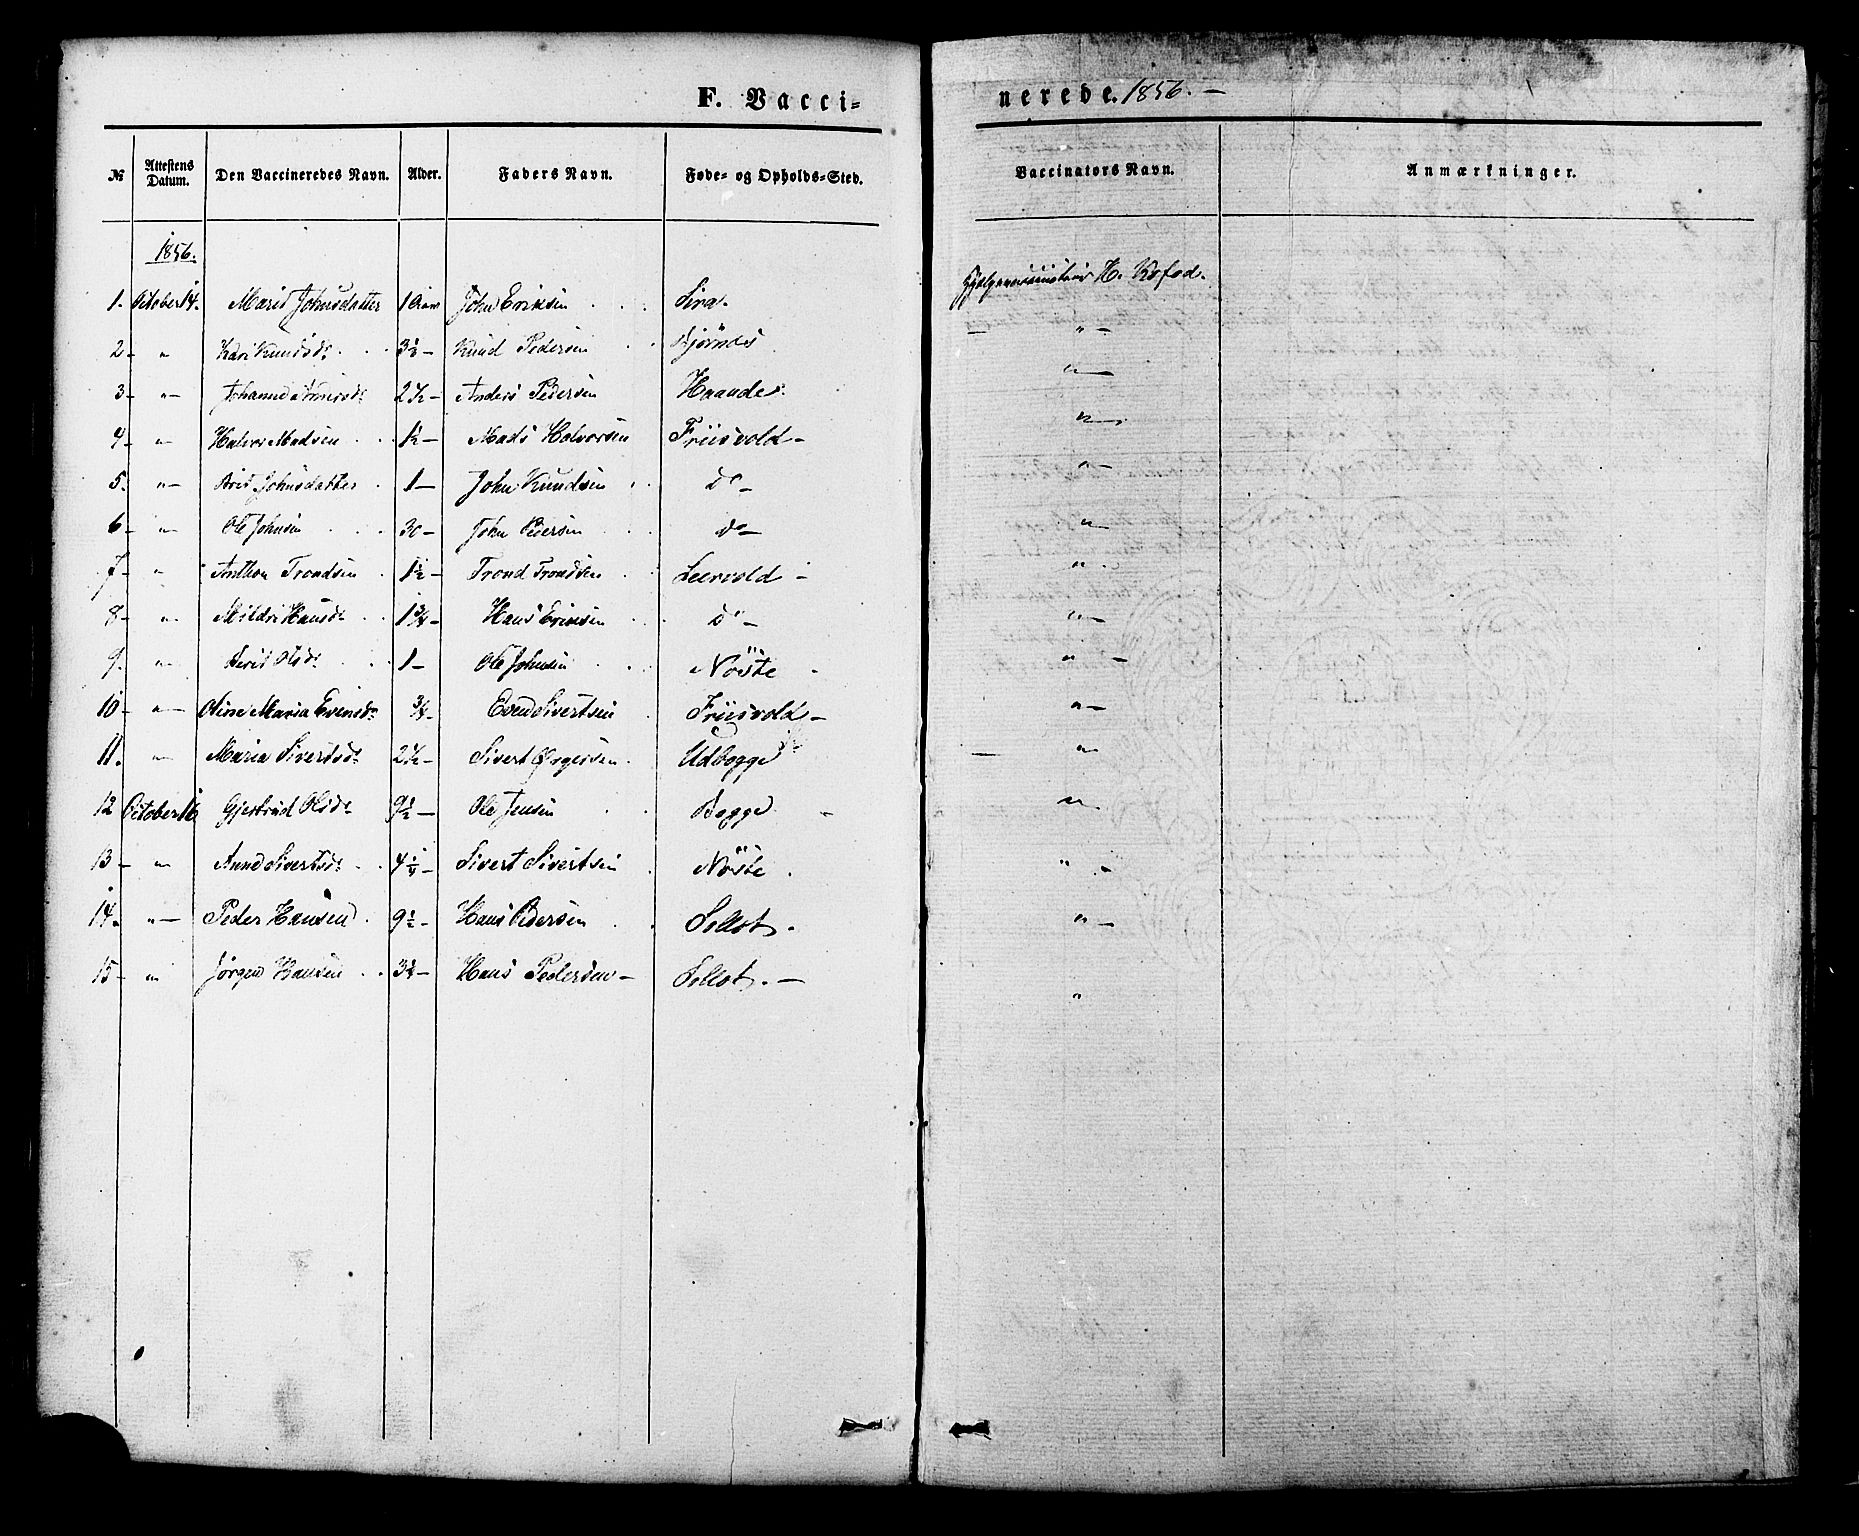 F. Vacci=
nerede. 1856. —
№ Attestens Datum. Den Vaccineredes Navn. Alder. Faders Navn. Føde- og Opholds-Sted. Vaccinators Navn. Anmærkninger.
1856.
1. October 14. Marit Johnsdatter John Eriksen Sira. H. Kofod.
2 — " Kari Knudsdr 3½ — Knud Pedersen " —
3 — " — 2½ — Anders Pedersen Haandes. " —
4 — " — Halvor Madsen 1½ — Mads Halvorsen Friisvold — " —
5. " — Johnsdatter 1 — John Knudsen do — " —
6 — " — Ole Johnsen 30 — John Pedersen do — " —
7 — " Anthon Trondsen 1½ — Trond Trondsen — " —
8 — " — Hansdr 1¾ — Hans Eriksen do — " —
9. " — Olsdr 1 — Ole Johnsen Nöste " —
10 — " — Oline Maria Evensdr ¾ — Even Sivertsen Friisvold — " —
11. " — Maria Sivertsdr 2½ — Sivert Udbogge " —
12 October 16 Gjertrud Olsdr 9½ — Ole Jensen Bogge. " —
13 — " — Anne Sivertsdr 4¼ — Sivert Sivertsen Nöste. " —
14. " — Peder Hansen 9½ — Hans Pedersen " —
15 — " Jørgen Hansen Hans Pedersen — "